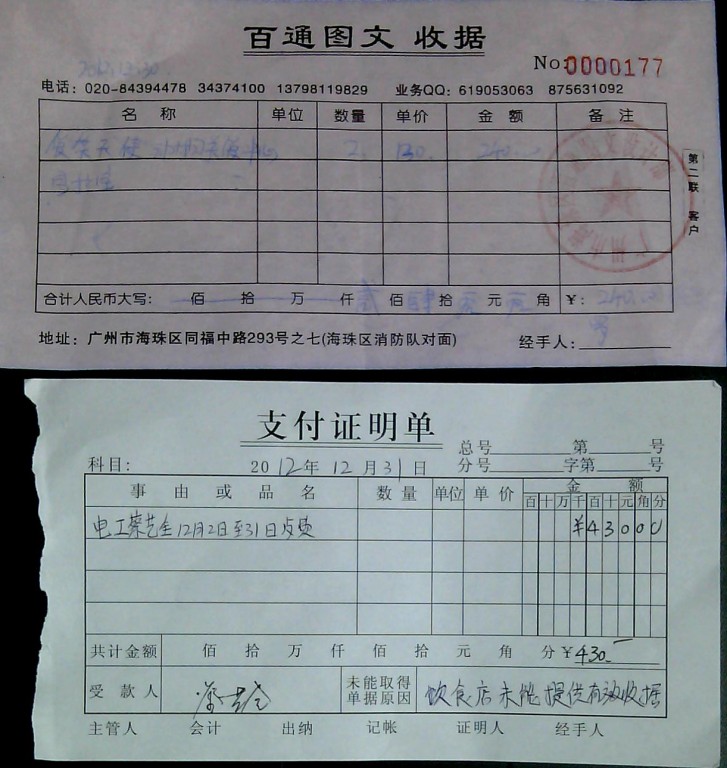 百通图文 收据
No:0000177
2012.12.30
电话：020-84394478 34374100 13798119829 业务QQ：619053063 875631092
名称 单位 数量 单价 金额 备注
2 120. 240.00
第二联 客户
合计人民币大写： 佰 拾 万 仟 贰 佰 肆 拾 元 角 ￥: 240.00
地址：广州市海珠区同福中路293号之七(海珠区消防队对面) 经手人：
支付证明单
总号 第 号
科目： 2012年12月31日 分号 字第 号
事由或品名 数量 单位 单价 金额
百 十 万 千 百 十 元 角 分
电工蔡艺全12月2日至31日 ￥43000
共计金额 佰 拾 万 仟 佰 拾 元 角 分 ￥430.—
受款人 蔡艺全 未能取得单据原因 饮食店未能提供有效收据
主管人 会计 出纳 记帐 证明人 经手人